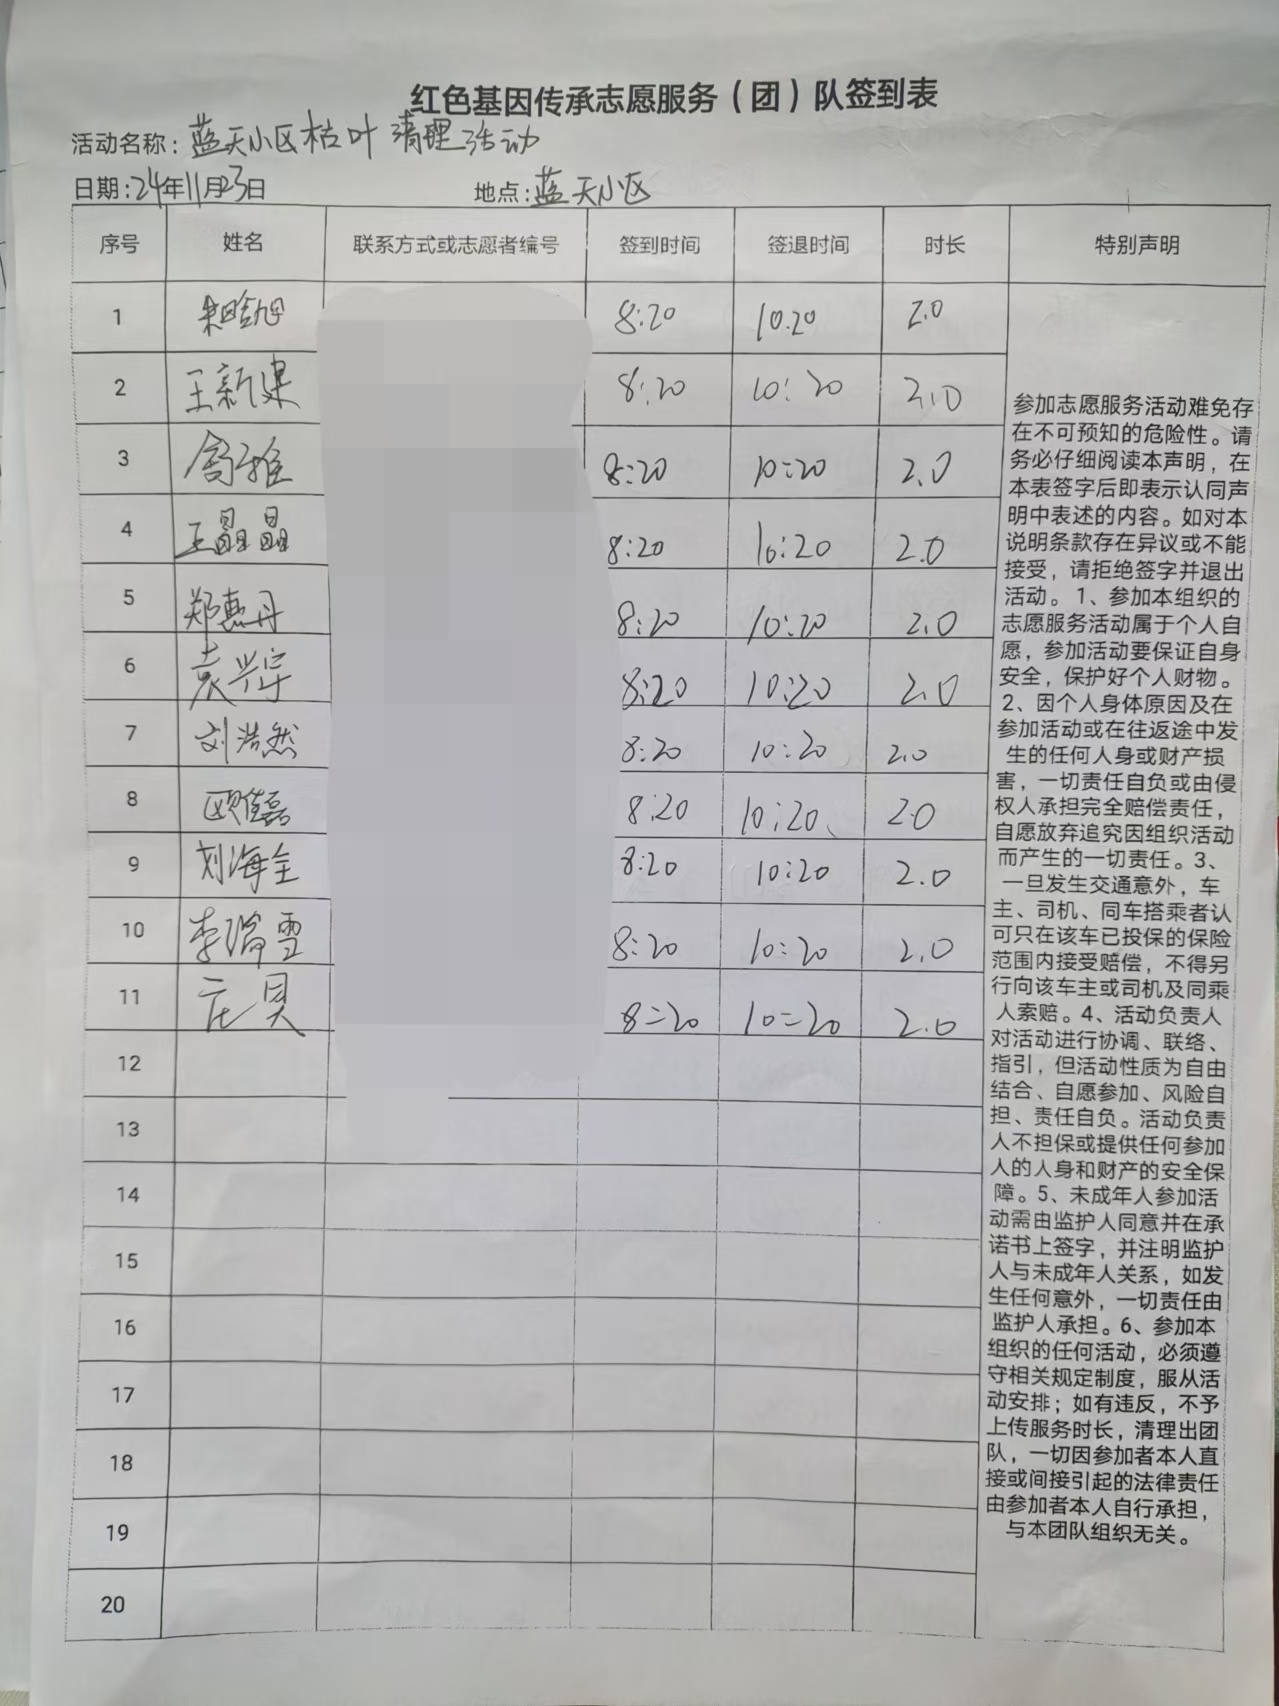 红色基因传承志愿服务（团）队签到表
活动名称：蓝天小区枯叶清理活动
日期：24年11月23日 地点：蓝天小区
序号 姓名 联系方式或志愿者编号 签到时间 签退时间 时长 特别声明
1 8:20 10:20 2.0
2 王新建 8:20 10:20 2.0
3 舒雅 8:20 10:20 2.0
4 王晶晶 8:20 10:20 2.0
5 郑惠丹 8:20 10:20 2.0
6 袁兴宇 8:20 10:20 2.0
7 刘浩然 8:20 10:20 2.0
8 8:20 10:20 2.0
9 刘海全 8:20 10:20 2.0
10 李瑞雪 8:20 10:20 2.0
11 庄贝 8:20 10:20 2.0
12
13
14
15
16
17
18
19
20
参加志愿服务活动难免存
在不可预知的危险性。请
务必仔细阅读本声明，在
本表签字后即表示认同声
明中表述的内容。如对本
说明条款存在异议或不能
接受，请拒绝签字并退出
活动。1、参加本组织的
志愿服务活动属于个人自
愿，参加活动要保证自身
安全，保护好个人财物。
2、因个人身体原因及在
参加活动或在往返途中发
生的任何人身或财产损
害，一切责任自负或由侵
权人承担完全赔偿责任，
自愿放弃追究因组织活动
而产生的一切责任。3、
一旦发生交通意外，车
主、司机、同车搭乘者认
可只在该车已投保的保险
范围内接受赔偿，不得另
行向该车主或司机及同乘
人索赔。4、活动负责人
对活动进行协调、联络、
指引，但活动性质为自由
结合、自愿参加、风险自
担、责任自负。活动负责
人不担保或提供任何参加
人的人身和财产的安全保
障。5、未成年人参加活
动需由监护人同意并在承
诺书上签字，并注明监护
人与未成年人关系，如发
生任何意外，一切责任由
监护人承担。6、参加本
组织的任何活动，必须遵
守相关规定制度，服从活
动安排；如有违反，不予
上传服务时长，清理出团
队，一切因参加者本人直
接或间接引起的法律责任
由参加者本人自行承担，
与本团队组织无关。